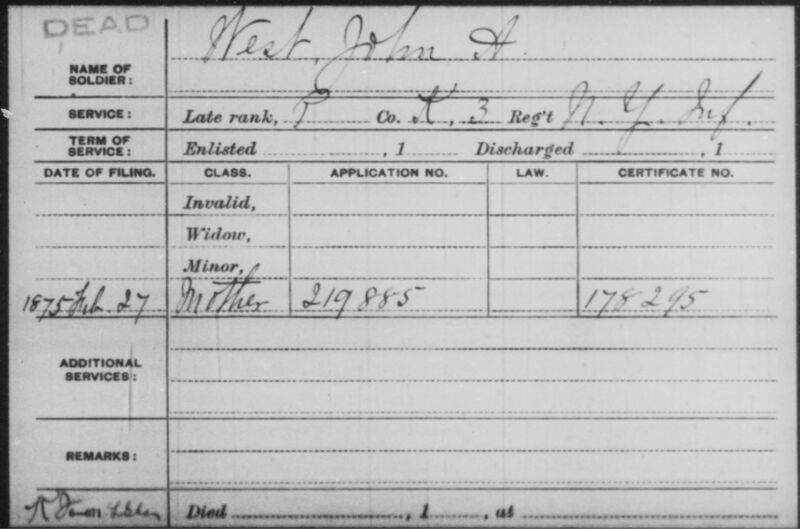 DEAD
West, John A.
NAME OF SOLDIER:
SERVICE: Late rank, P Co. K, 3 Reg't N. Y. Inf.
TERM OF SERVICE: Enlisted , 1 Discharged , 1
DATE OF FILING. CLASS. APPLICATION NO. LAW. CERTIFICATE NO.
Invalid,
Widow,
Minor,
1875 Feb. 27 Mother 219885 178295
ADDITIONAL SERVICES:
REMARKS:
Died , 1 , at